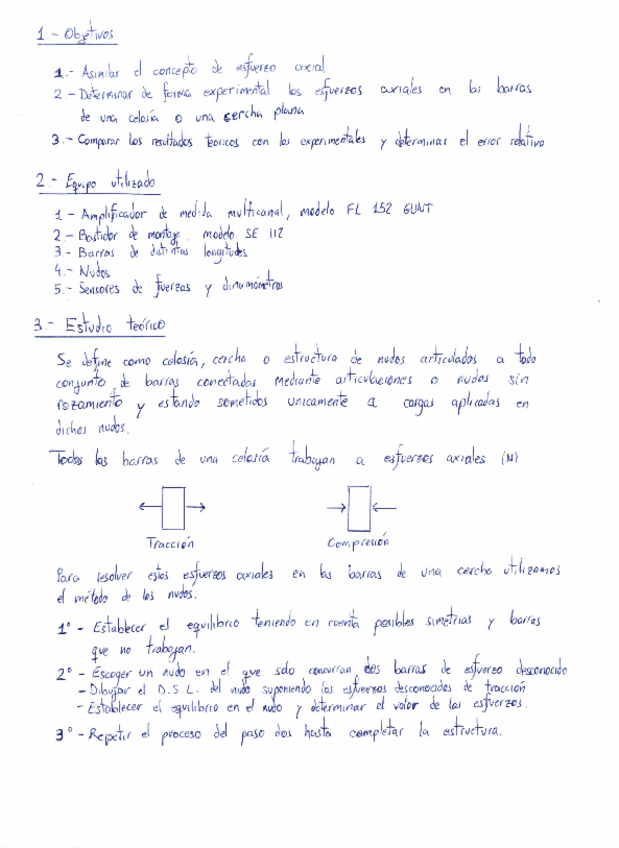 1 - Objetivos
1.- Asimilar el concepto de esfuerzo axial
2.- Determinar de forma experimental los esfuerzos axiales en las barras
de una celosía o una cercha plana
3.- Comparar los resultados teoricos con los experimentales y determinar el error relativo
2.- Equipo utilizado
1 - Amplificador de medida multicanal, modelo FL 152 GUNT
2.- Bastidor de montaje modelo SE 112
3.- Barras de distintas longitudes
4.- Nudos
5.- Sensores de fuerzas y dinamómetros
3.- Estudio teórico
Se define como celosía, cercha o estructura de nudos articulados a todo
conjunto de barras conectadas mediante articulaciones o nudos sin
rozamiento y estando sometidos unicamente a cargas aplicadas en
dichos nudos.
Todas las barras de una celosía trabajan a esfuerzos axiales (N)
Tracción Compresión
Para resolver estos esfuerzos axiales en las barras de una cercha utilizamos
el método de los nudos.
1º - Establecer el equilibrio teniendo en cuenta posibles simetrías y barras
que no trabajan.
2º - Escoger un nudo en el que solo concurran dos barras de esfuerzo desconocido
- Dibujar el D.S.L. del nudo suponiendo los esfuerzos desconocidos de tracción
- Establecer el equilibrio en el nudo y determinar el valor de los esfuerzos.
3º - Repetir el proceso del paso dos hasta completar la estructura.